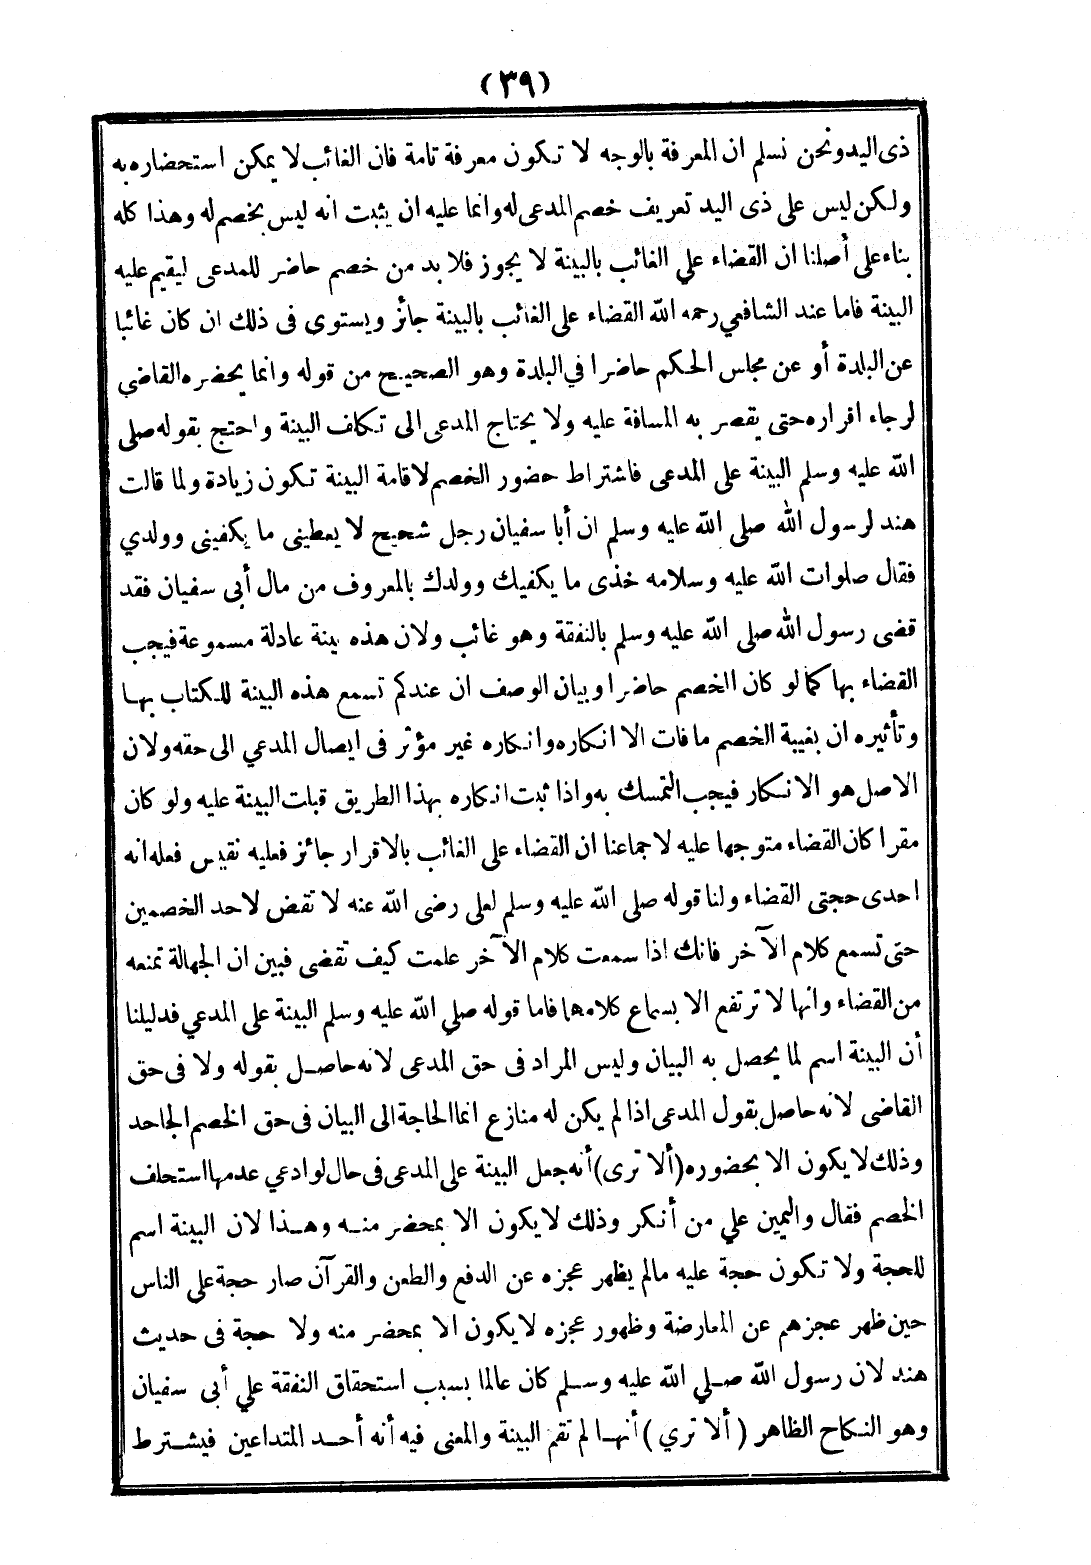 (٣٩)
ذى اليد ونحن نسلم ان المعرفة بالوجه لا تكون معرفة تامة فان الغائب لا يمكن استحضاره به
ولكن ليس على ذى اليد تعريف خصم المدعى له وانما عليه ان يثبت انه ليس بخصم له وهذا كله
بناء على أصلنا ان القضاء علي الغائب بالبينة لا يجوز فلا بد من خصم حاضر للمدعى ليقيم عليه
البينة فاما عند الشافعي رحمه الله القضاء على الغائب بالبينة جائز ويستوى فى ذلك ان كان غائبا
عن البلدة أو عن مجلس الحكم حاضرا في البلدة وهو الصحيح من قوله وانما يحضره القاضي
لرجاء اقراره حتى يقصر به المسافة عليه ولا يحتاج المدعى الى تكلف البينة واحتج بقوله صلى
الله عليه وسلم البينة على المدعى فاشتراط حضور الخصم لاقامة البينة تكون زيادة ولما قالت
هند لرسول الله صلى الله عليه وسلم ان أبا سفيان رجل شحيح لا يعطينى ما يكفينى وولدي
فقال صلوات الله عليه وسلامه خذى ما يكفيك وولدك بالمعروف من مال أبى سفيان فقد
قضى رسول الله صلى الله عليه وسلم بالنفقة وهو غائب ولان هذه بينة عادلة مسموعة فيجب
القضاء بها كما لو كان الخصم حاضرا وبيان الوصف ان عندكم تسمع هذه البينة للكتاب بها
وتأثيره ان بغيبة الخصم ما فات الا انكاره وانكاره غير مؤثر فى ايصال المدعي الى حقه ولان
الاصل هو الانكار فيجب التمسك به واذا ثبت انكاره بهذا الطريق قبلت البينة عليه ولو كان
مقرا كان القضاء متوجها عليه لاجماعنا ان القضاء على الغائب بالاقرار جائز فعليه نقيس فعله انه
احدى حجتى القضاء ولنا قوله صلى الله عليه وسلم لعلى رضى الله عنه لا تقض لاحد الخصمين
حتى تسمع كلام الآخر فانك اذا سمعت كلام الآخر علمت كيف تقضى فبين ان الجهالة تمنعه
من القضاء وانها لا ترتفع الا بسماع كلامهما فاما قوله صلي الله عليه وسلم البينة على المدعي فدليلنا
أن البينة اسم لما يحصل به البيان وليس المراد فى حق المدعى لانه حاصل بقوله ولا فى حق
القاضى لانه حاصل بقول المدعى اذا لم يكن له منازع انما الحاجة الى البيان فى حق الخصم الجاحد
وذلك لا يكون الا بحضوره (ألا ترى) أنه جعل البينة على المدعى فى حال لو ادعي عدمها استحلف
الخصم فقال واليمين علي من أنكر وذلك لا يكون الا بمحضر منه وهذا لان البينة اسم
للحجة ولا تكون حجة عليه مالم يظهر عجزه عن الدفع والطعن والقرآن صار حجة على الناس
حين ظهر عجزهم عن المعارضة وظهور عجزه لا يكون الا بمحضر منه ولا حجة فى حديث
هند لان رسول الله صلي الله عليه وسلم كان عالما بسبب استحقاق النفقة علي أبى سفيان
وهو النكاح الظاهر (ألا تري) أنها لم تقم البينة والمعنى فيه أنه أحد المتداعين فيشترط